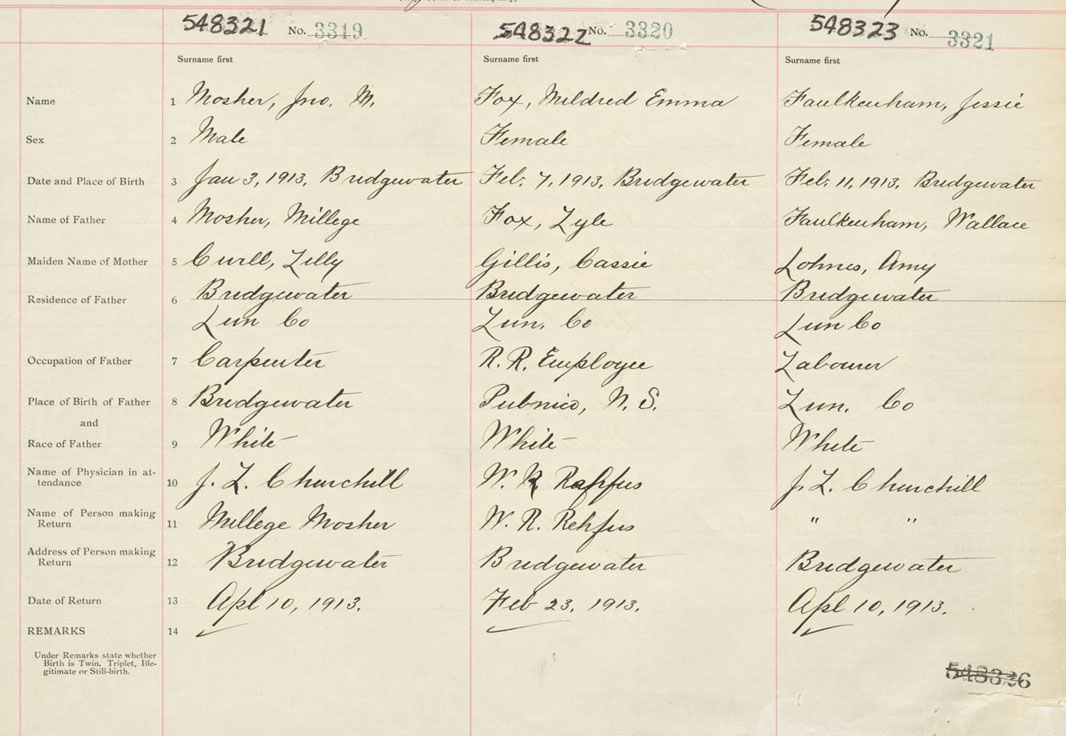 548321 No. 3319 548322 No. 3320 548323 No. 3321
Surname first Surname first Surname first
Name 1 Mosher, Jno. M. Fox, Mildred Emma Faulkenham, Jessie
Sex 2 Male Female Female
Date and Place of Birth 3 Jan 3, 1913, Bridgewater Feb. 7, 1913, Bridgewater Feb. 11, 1913, Bridgewater
Name of Father 4 Mosher, Millege Fox, Lyle Faulkenham, Wallace
Maiden Name of Mother 5 Lilly Gillis, Cassie Lohnes, Amy
Residence of Father 6 Bridgewater Bridgewater Bridgewater
Lun Co Lun. Co Lun Co
Occupation of Father 7 Carpenter R. R. Employee Labourer
Place of Birth of Father 8 Bridgewater Pubnico, N. S. Lun. Co
and
Race of Father 9 White White White
Name of Physician in at-
tendance 10 J. L. Churchill W. R. J. L. Churchill
Name of Person making
Return 11 Millege Mosher W. R. Rehfus " "
Address of Person making
Return 12 Bridgewater Bridgewater Bridgewater
Date of Return 13 Apl 10, 1913. Feb 23, 1913. Apl 10, 1913.
REMARKS 14
Under Remarks state whether
Birth is Twin, Triplet, Ille-
gitimate or Still-birth.
548336